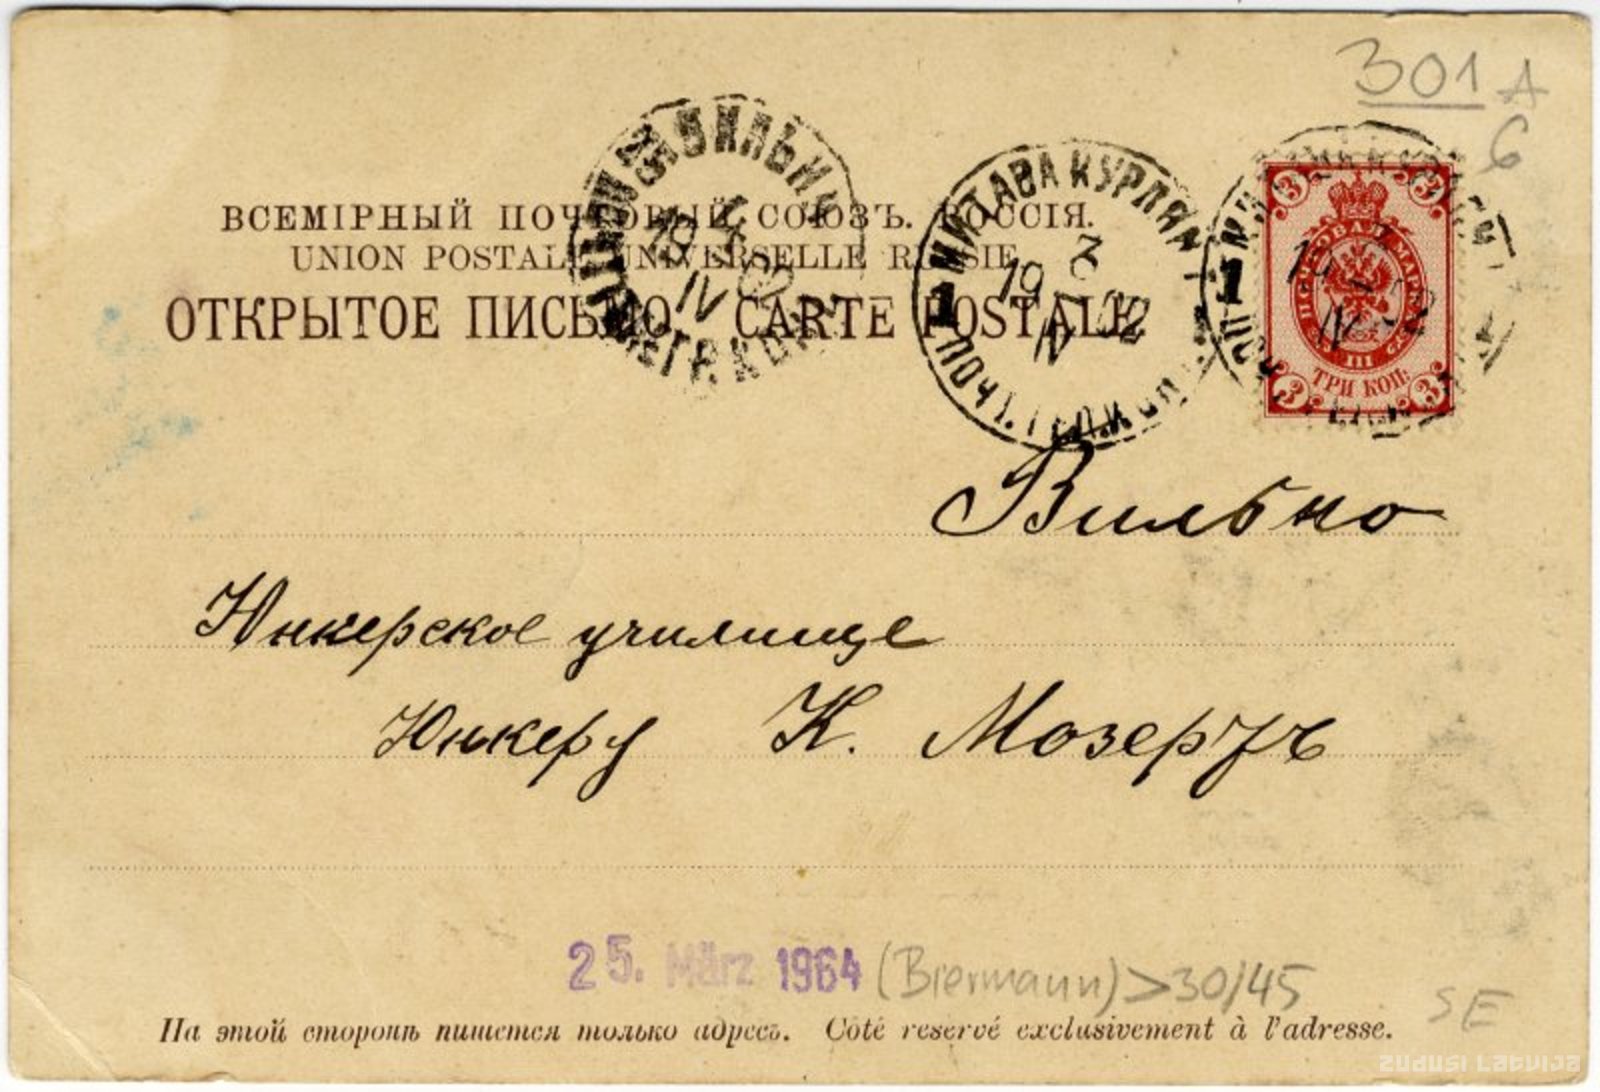 301 A
6
ВИЛЬНА
19 4 02
IV
МИТАВА КУРЛЯН.
1
3
19 02
IV
ПОЧТ. ТЕЛ. КОН.
1
19 02
IV
ПОЧТОВАЯ МАРКА
3 3
3 3
ТРИ КОП.
ВСЕМІРНЫЙ ПОЧТОВЫЙ СОЮЗЪ. РОССІЯ.
UNION POSTALE UNIVERSELLE RUSSIE
ОТКРЫТОЕ ПИСЬМО CARTE POSTALE
Вильно
Юнкерское училище
Юнкеру К. Мозеръ
25. März 1964 (Biermann) >30/45
SE
На этой сторонѣ пишется только адресъ. Côté reservé exclusivement à l'adresse.
ZUDUSI LATVIJA